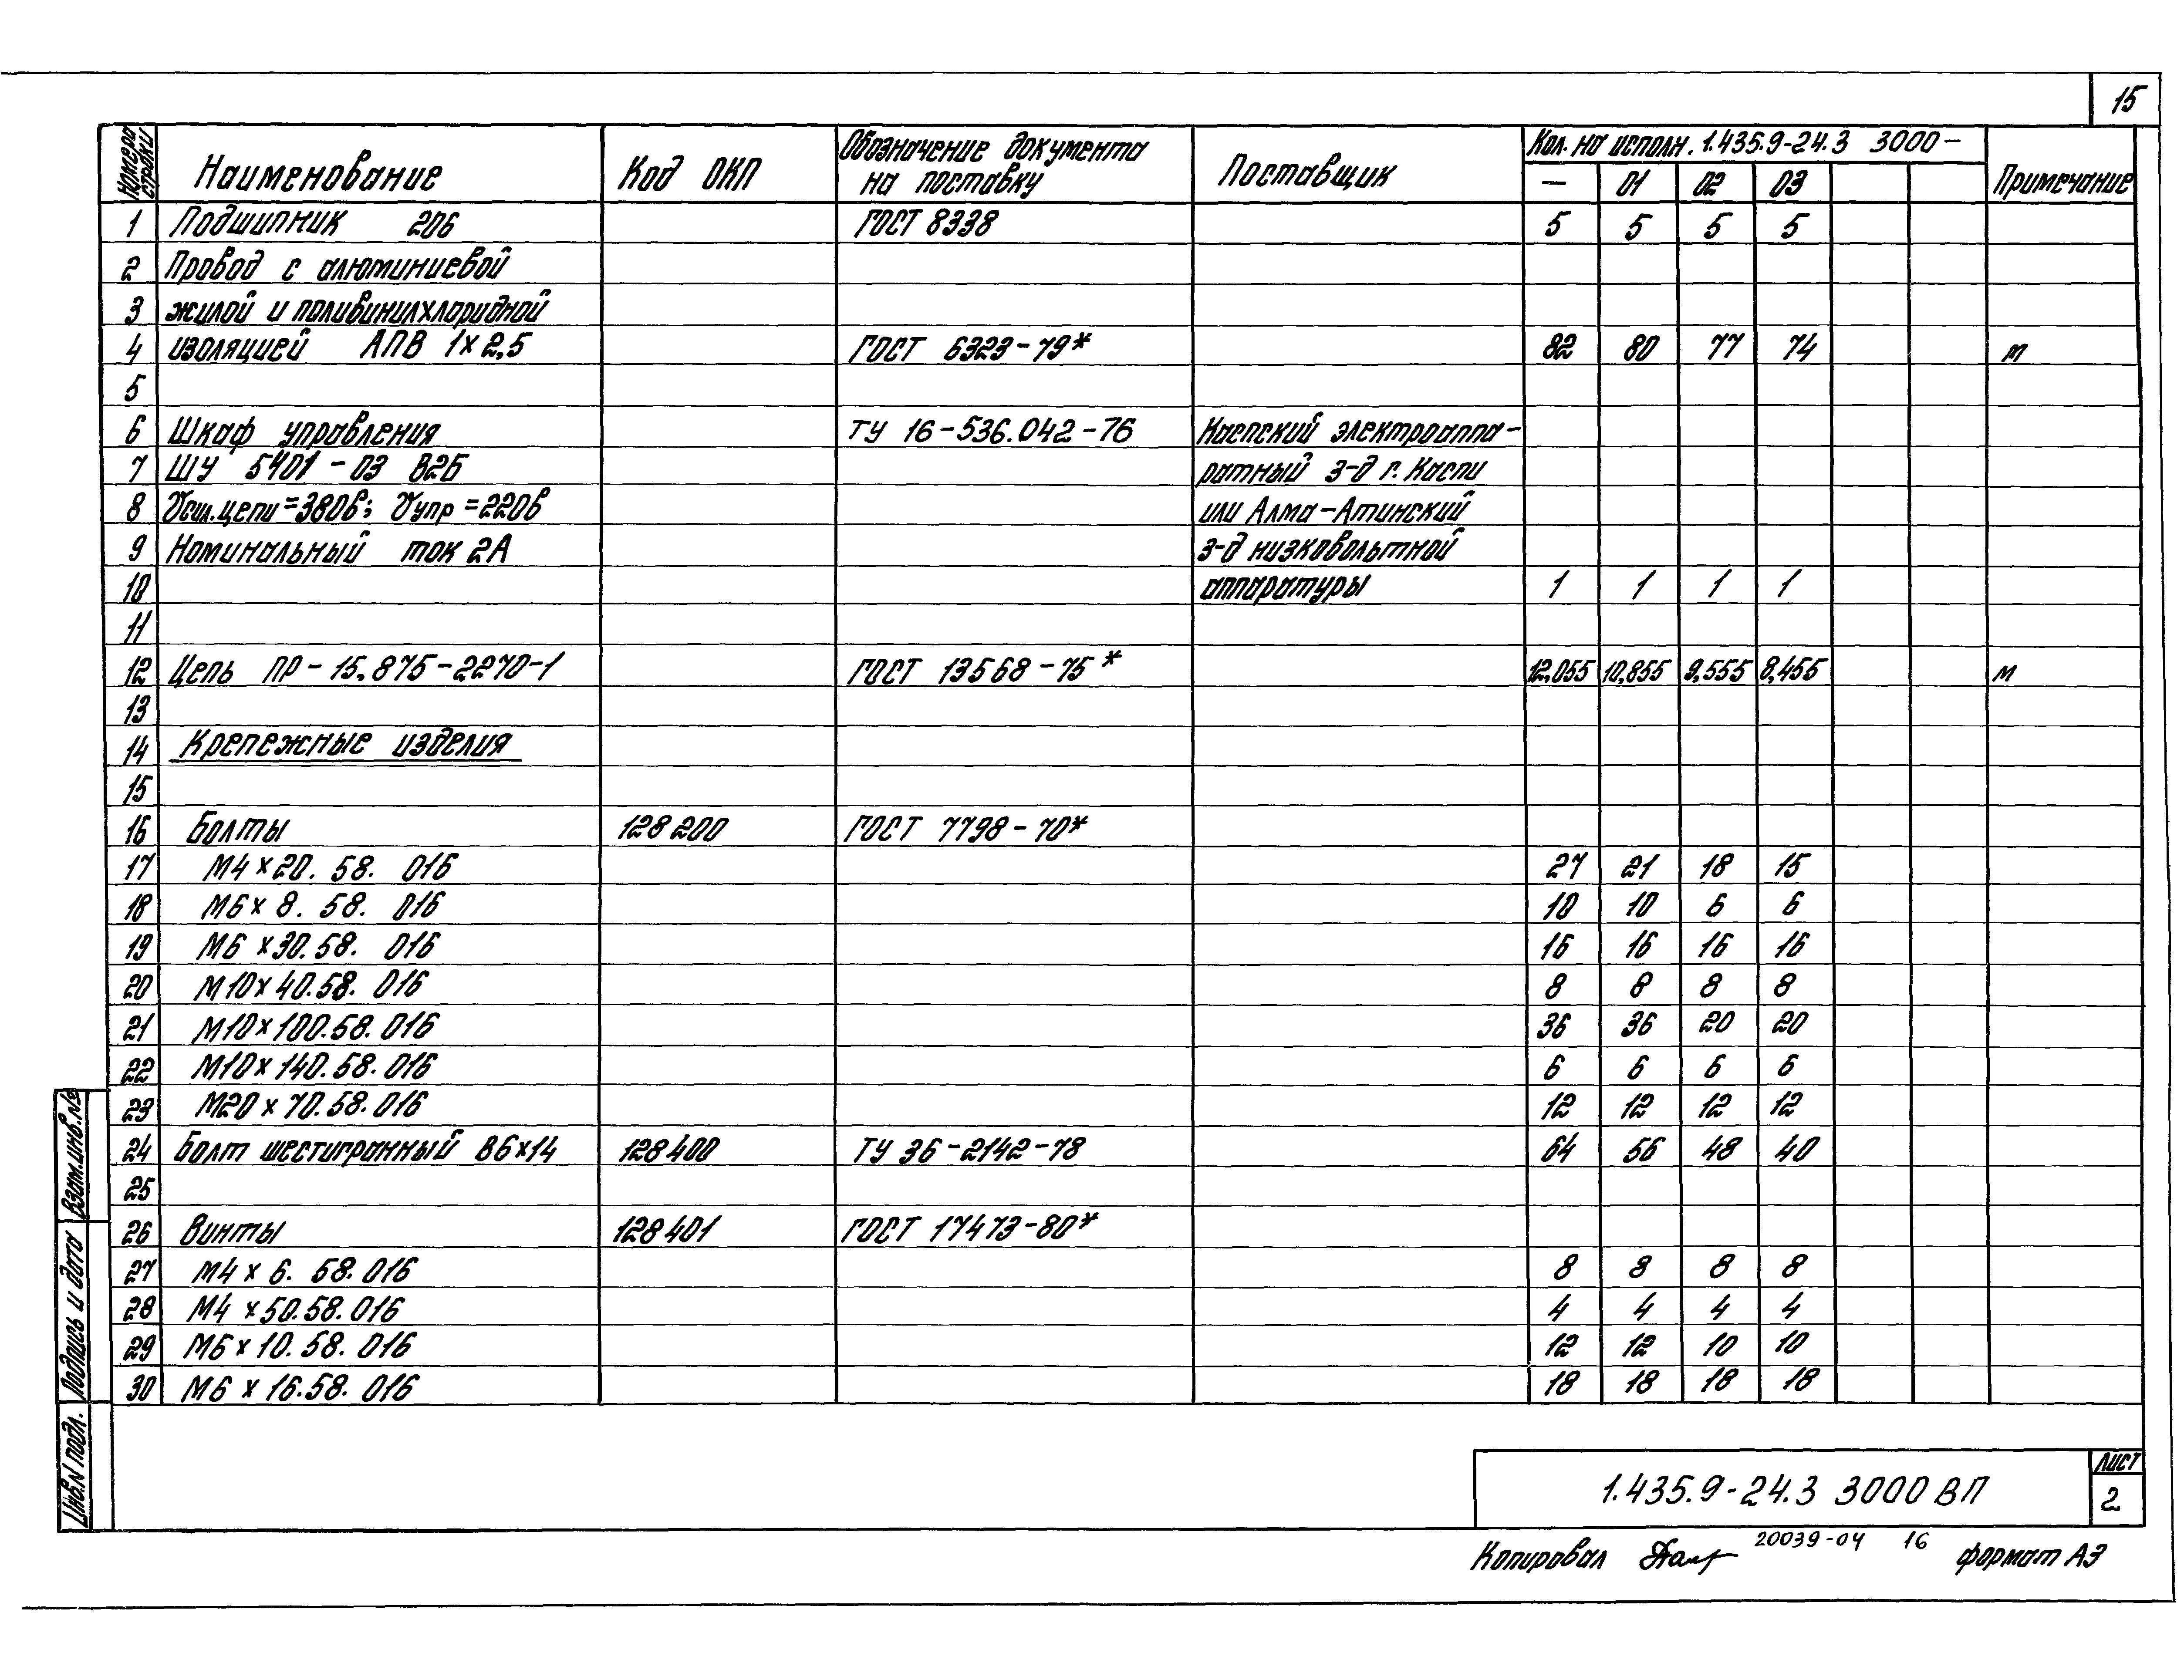 15
Номера строки | Наименование | Код ОКП | Обозначение документа на поставку | Поставщик | Кол. на исполн. 1.435.9-24.3 3000- | Примечание
— | 01 | 02 | 03
1 Подшипник 206 ГОСТ 8338 5 5 5 5
2 Провод с алюминиевой
3 жилой и поливинилхлоридной
4 изоляцией АПВ 1×2,5 ГОСТ 6323-79* 82 80 77 74 м
5
6 Шкаф управления ТУ 16-536.042-76 Каспский электроаппа-
7 ШУ 5401-03 В2Б ратный з-д г. Каспи
8 Uсил.цепи=380в; Uупр=220в или Алма-Атинский
9 Номинальный ток 2А з-д низковольтной
10 аппаратуры 1 1 1 1
11
12 Цепь ПР-15.875-2270-1 ГОСТ 13568-75* 12,055 10,855 9,555 8,455 м
13
14 Крепежные изделия
15
16 Болты 128200 ГОСТ 7798-70*
17 М4×20.58.016 27 21 18 15
18 М6×8.58.016 10 10 6 6
19 М6×30.58.016 16 16 16 16
20 М10×40.58.016 8 8 8 8
21 М10×100.58.016 36 36 20 20
22 М10×140.58.016 6 6 6 6
23 М20×70.58.016 12 12 12 12
24 Болт шестигранный В6×14 128400 ТУ 36-2142-78 64 56 48 40
25
26 Винты 128401 ГОСТ 17473-80*
27 М4×6.58.016 8 8 8 8
28 М4×50.58.016 4 4 4 4
29 М6×10.58.016 12 12 10 10
30 М6×16.58.016 18 18 18 18
Взам.инв.№
Подпись и дата
Инв.N подл.
1.435.9-24.3 3000 ВП
Лист
2
Копировал 20039-04 16 формат А3